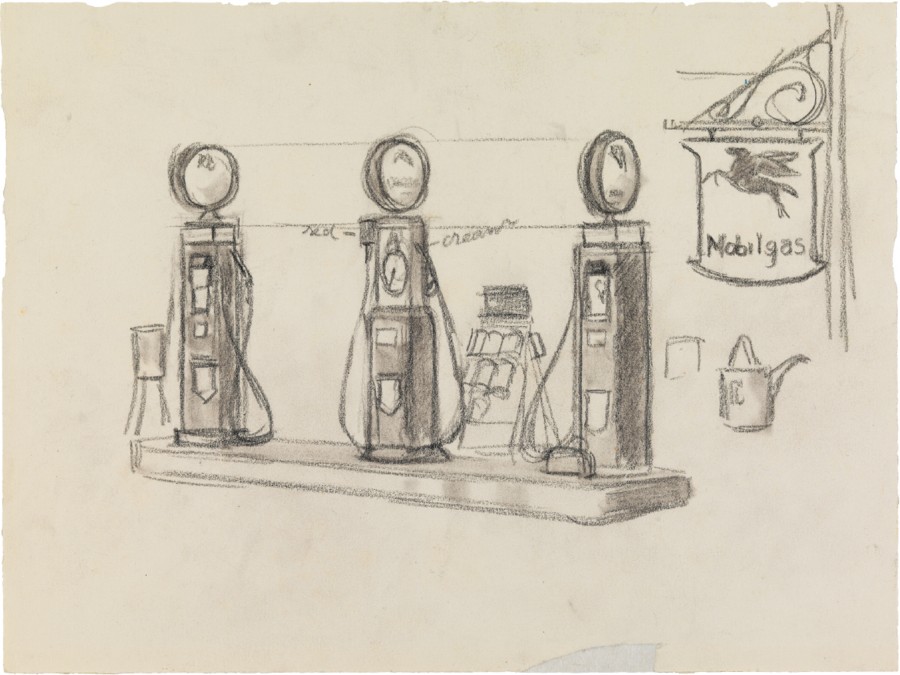 red
cream
Mobilgas